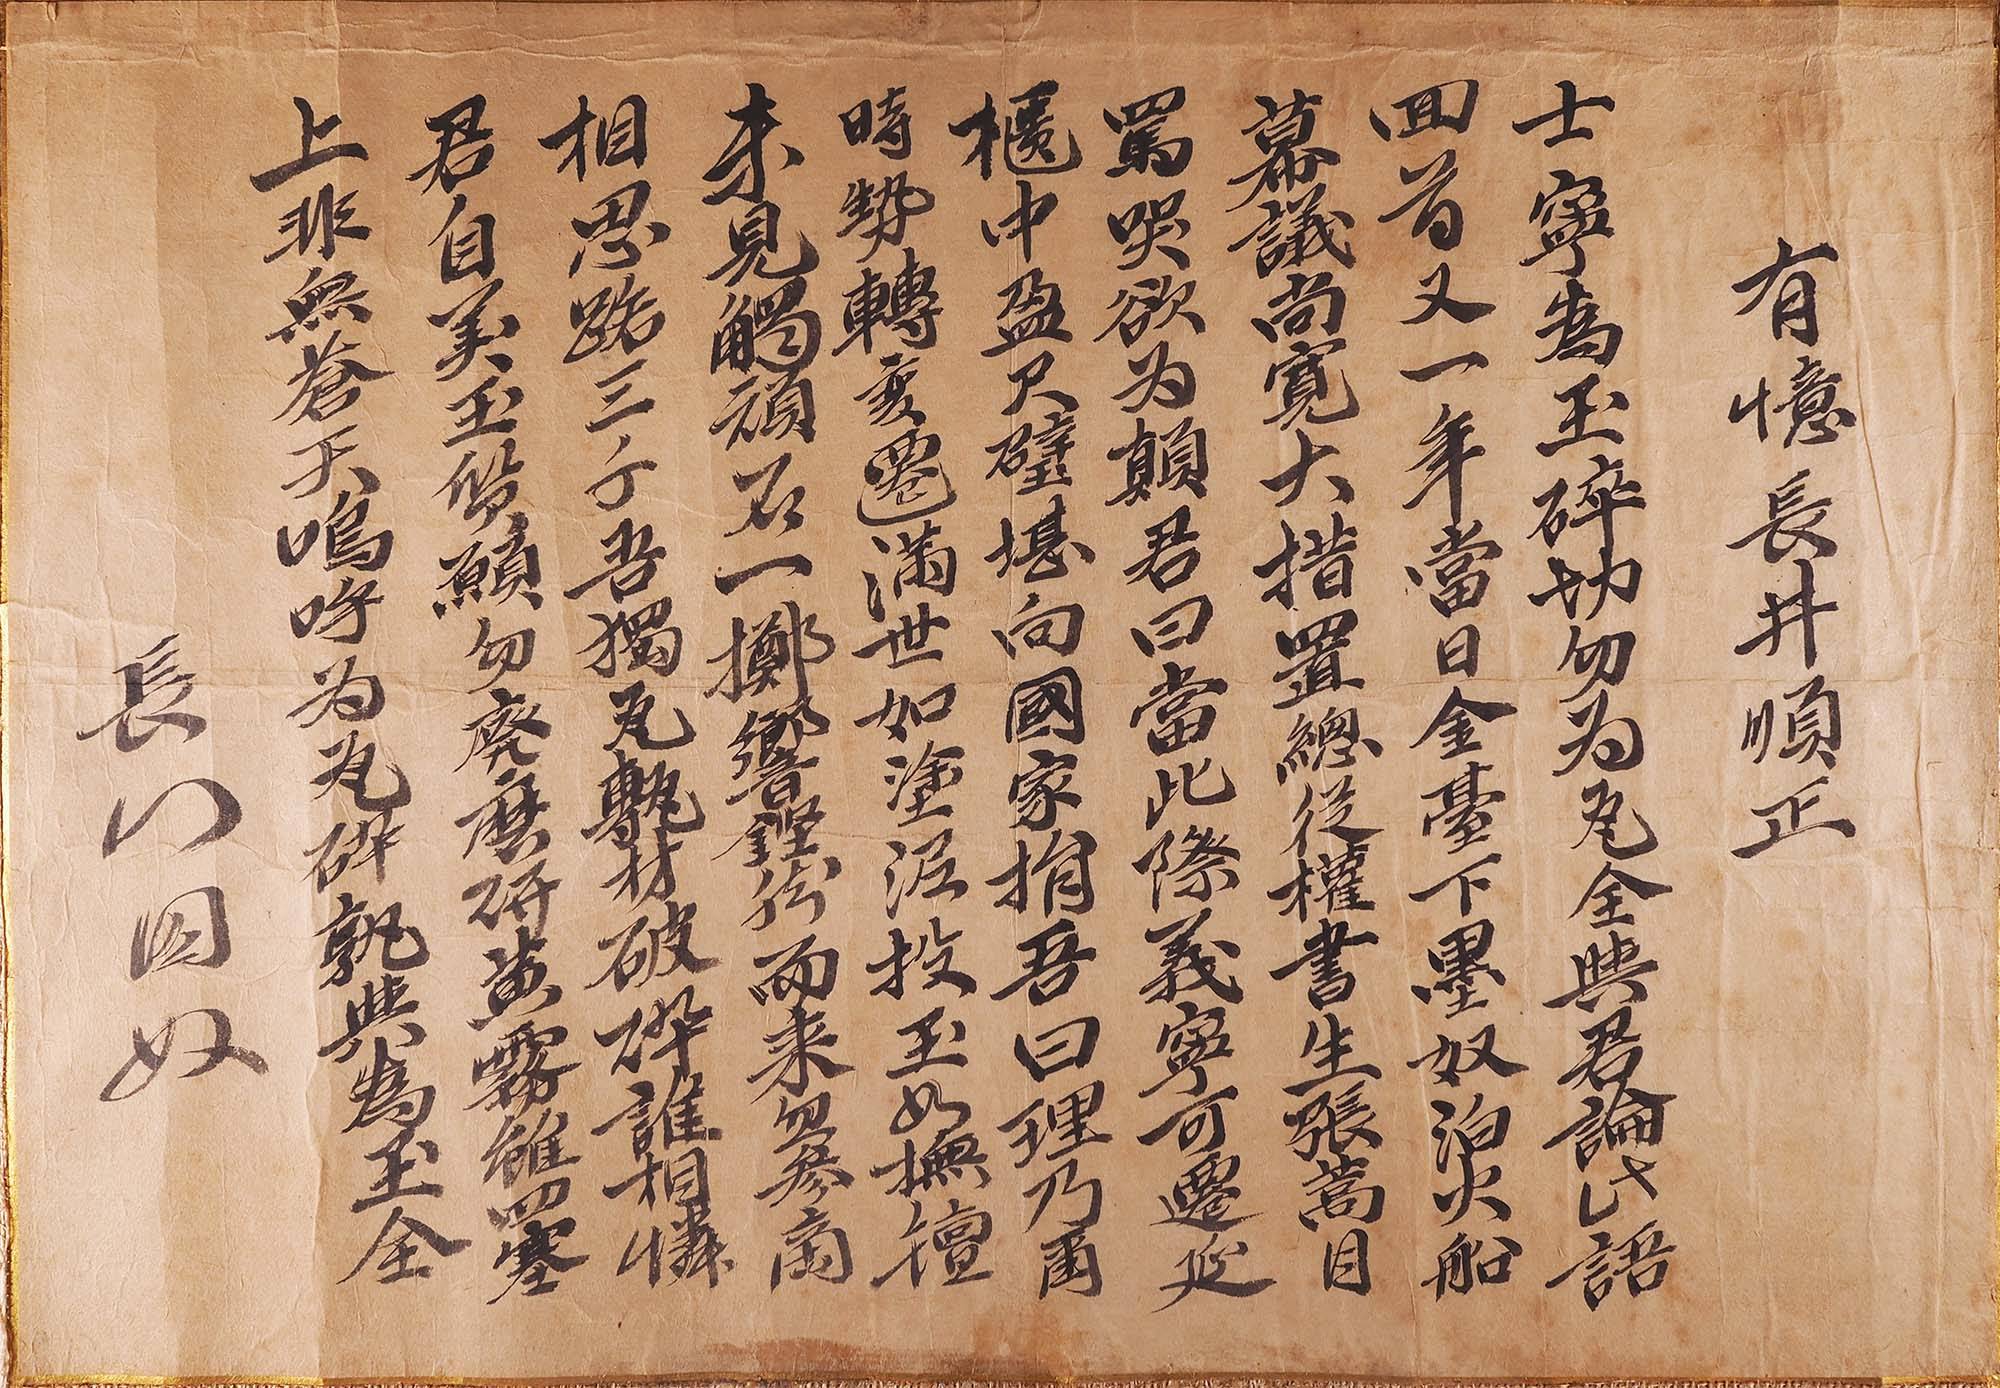 有憶長井順正
士寧為玉碎切勿為瓦全與君論此語
回首又一年當日金臺下墨奴泊火船
幕議尚寬大措置總從權書生張蒿目
罵哭欲为顛君曰當此際義寧可遷延
櫃中盈尺璧堪向國家捐吾曰理乃爾
時勢轉変遷滿世如塗泥投玉如撫䥊
未見觸頑石一擲響鏗然而来忽参商
相思踰三千吾獨瓦甎材破碎誰相憐
君自美玉質願勿廃磨研黄霧雖四塞
上非無蒼天嗚呼为瓦碎孰與為玉全
長門囚奴